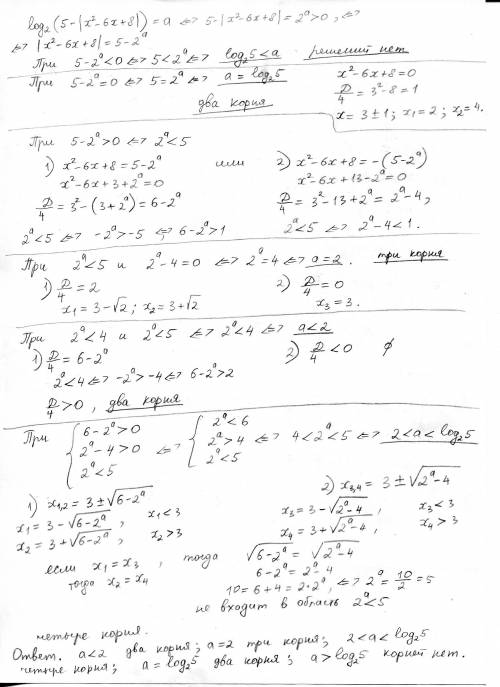 log₂(5-|x²-6x+8|) = a ⇔ 5-|x²-6x+8| = 2ᵃ > 0, ⇔
⇔ |x²-6x+8| = 5-2ᵃ
При 5-2ᵃ<0 ⇔ 5<2ᵃ ⇔ log₂5<a решений нет.
При 5-2ᵃ=0 ⇔ 5=2ᵃ ⇔ a = log₂5
два корня
x²-6x+8=0
D/4 = 3²-8 = 1
x = 3±1; x₁=2; x₂=4.
При 5-2ᵃ>0 ⇔ 2ᵃ<5
1) x²-6x+8 = 5-2ᵃ или 2) x²-6x+8 = -(5-2ᵃ)
x²-6x+3+2ᵃ=0 x²-6x+13-2ᵃ=0
D/4 = 3²-(3+2ᵃ) = 6-2ᵃ D/4 = 3²-13+2ᵃ = 2ᵃ-4,
2ᵃ<5 ⇔ -2ᵃ>-5 ⇔ 6-2ᵃ>1 2ᵃ<5 ⇔ 2ᵃ-4<1.
При 2ᵃ<5 и 2ᵃ-4=0 ⇔ 2ᵃ=4 ⇔ a=2. три корня
1) D/4 = 2 2) D/4 = 0
x₁ = 3-√2; x₂ = 3+√2 x₃ = 3.
При 2ᵃ<4 и 2ᵃ<5 ⇔ 2ᵃ<4 ⇔ a<2
1) D/4 = 6-2ᵃ 2) D/4 < 0 ∅
2ᵃ<4 ⇔ -2ᵃ>-4 ⇔ 6-2ᵃ>2
D/4 > 0, два корня
При { 6-2ᵃ>0 ⇔ { 2ᵃ<6
2ᵃ-4>0 2ᵃ>4 ⇔ 4<2ᵃ<5 ⇔ 2<a<log₂5
2ᵃ<5 2ᵃ<5
1) x₁,₂ = 3±√(6-2ᵃ) 2) x₃,₄ = 3±√(2ᵃ-4)
x₁ = 3-√(6-2ᵃ), x₁<3 x₃ = 3-√(2ᵃ-4), x₃<3
x₂ = 3+√(6-2ᵃ), x₂>3 x₄ = 3+√(2ᵃ-4), x₄>3
если x₁=x₃, тогда √(6-2ᵃ) = √(2ᵃ-4)
тогда x₂=x₄ 6-2ᵃ = 2ᵃ-4
10=6+4=2·2ᵃ, ⇔ 2ᵃ = 10/2 = 5
не входит в область 2ᵃ<5
четыре корня.
Ответ. a<2 два корня; a=2 три корня; 2<a<log₂5
четыре корня; a = log₂5 два корня; a>log₂5 корней нет.